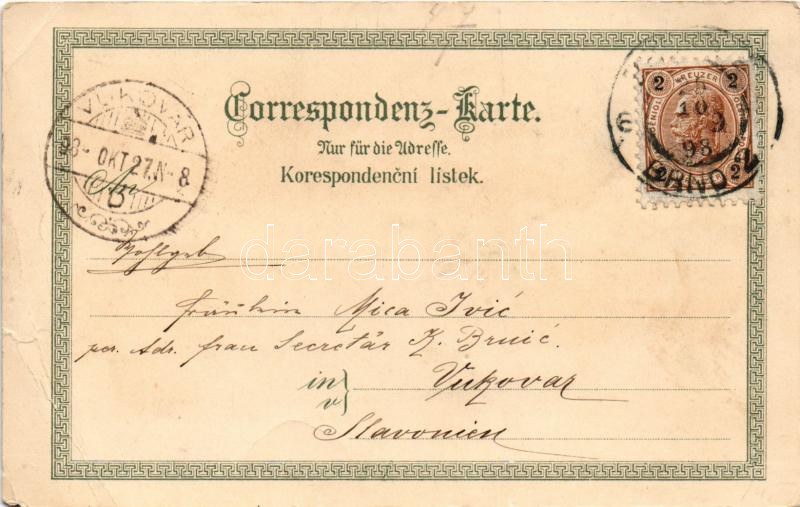 Correspondenz-Karte.
Nur für die Adresse.
Korespondenční lístek.
VUKOVÁR
98- OKT.27.N-8
2 KREUZER 2
10
98
BRNO
2 2
darabanth
An
Wohlgeb
Fräulein Mica Ivić
per. Adr. frau Secretär K. Brnić.
in
v
Vukovar
Slavonien